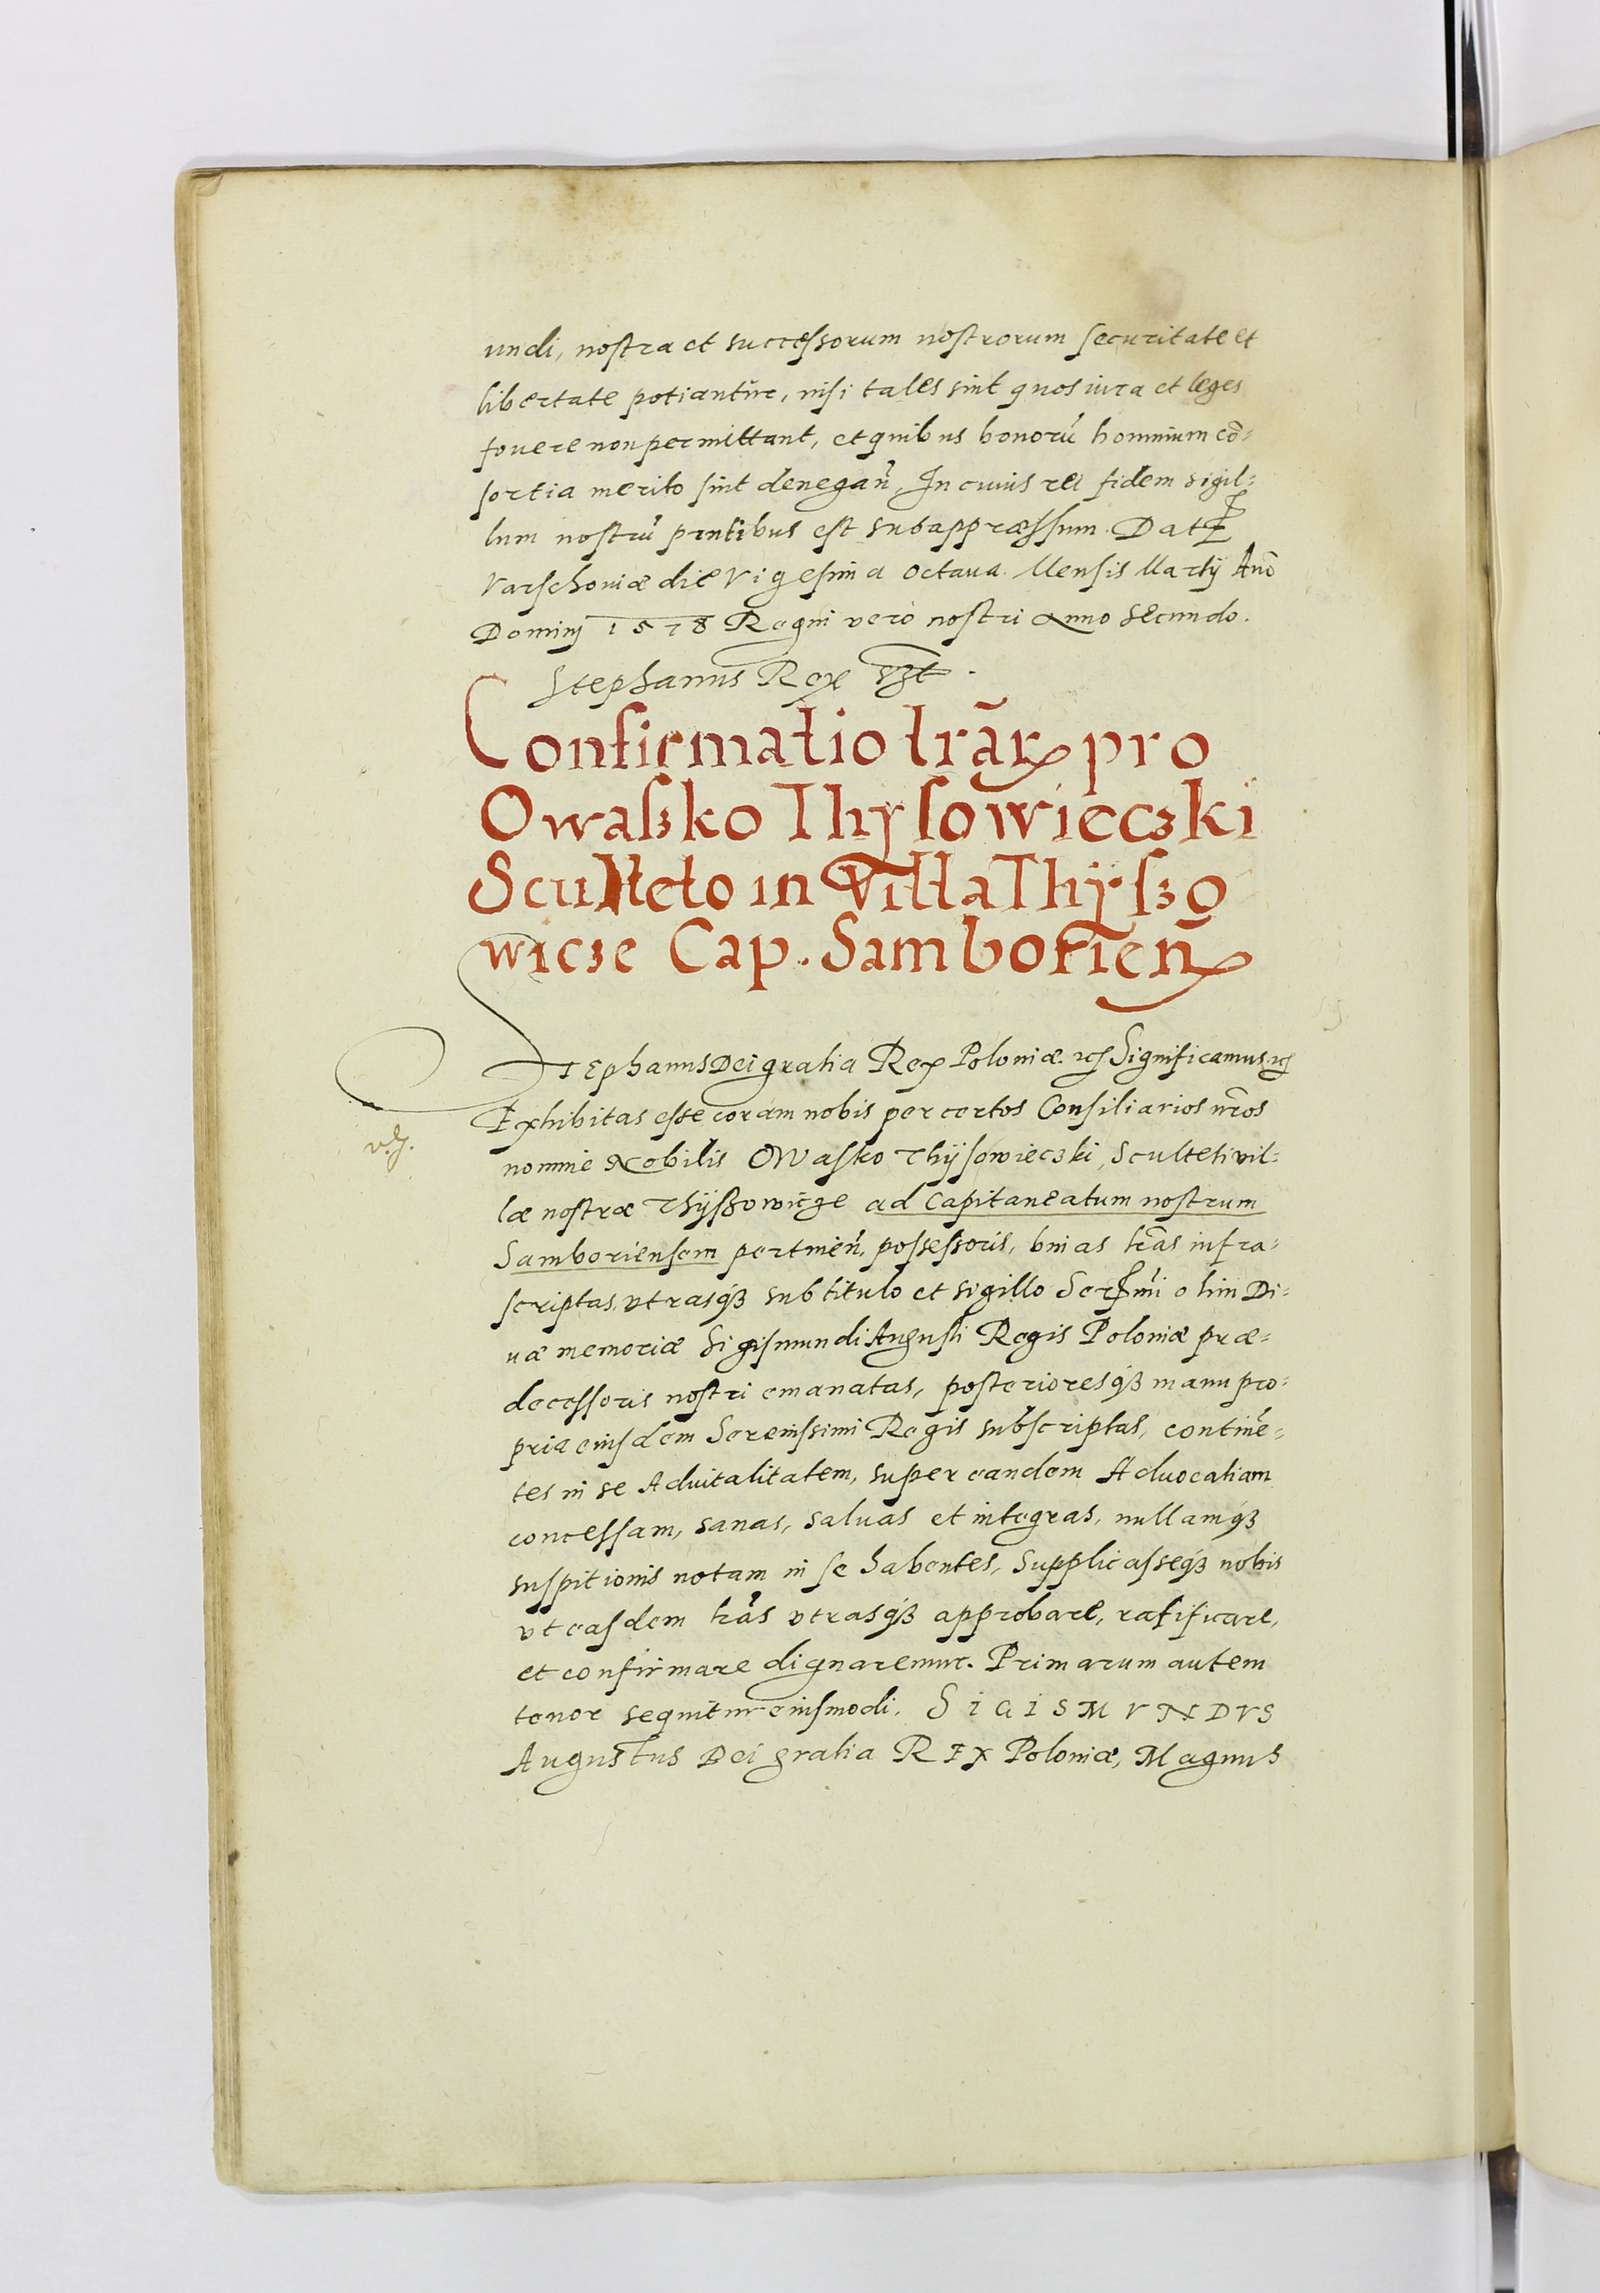 undi, nostra et successorum nostrorum securitate et
libertate potiantur, nisi tales sint quos iura et leges
fouere non permittant, et quibus bonorū hominum cō-
sortia merito sint denegañ. In cuius rei fidem sigil-
lum nostrū pñtibus est subappræssum. Dat
Varschoviæ die Vigesima octaua Mensis Martij Anō
Dominj 1578 Regni vero nostri Anno secundo.
Stephanus Rex sst.
Confirmatio lrãr pro
Owasko Thysowieczki
Sculteto in villa Thyszo
wicze Cap. Samborieñ
Stephanus Dei gratia Rex Poloniæ etc Significamus etc
Exhibitas esse coram nobis per certos Consiliarios nr̄os
nomine Nobilis OWasko Thysowieczki, Sculteti vil-
læ nostræ Thyssowicze ad Capitaneatum nostrum
Samboriensem pertineñ, possessoris, binas lr̃as infra-
scriptas, vtrasq3 sub titulo et sigillo Sermi olim Di-
uæ memoriæ Sigismundi Augusti Regis Poloniæ præ-
decessoris nostri emanatas, posterioresq3 manu pro-
pria eiusdem Serenissimi Regis subscriptas, continē-
tes in se Aduitalitatem, super eandem Aduocatiam
concessam, sanas, saluas et integras, nullamq3
suspitionis notam in se habentes, Supplicasseq3 nobis
vt easdem lr̃as vtrasq3 approbare, ratificare,
et confirmare dignaremur. Primarum autem
tenor sequitur eiusmodi. SIGISMVNDVS
Augustus Dei gratia REX Poloniæ, Magnus